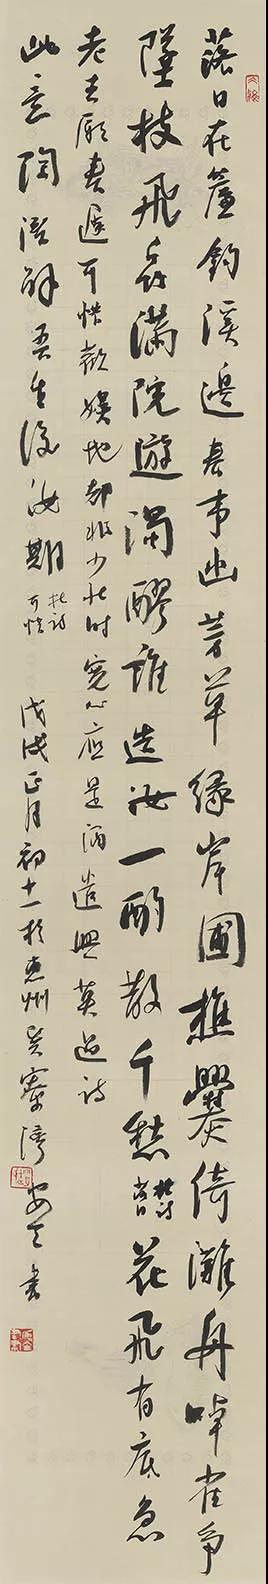 落日在簾鈎溪邊春事幽芳草緣岸圃樵爨倚灘舟啅雀爭
墜枝飛虫滿院遊濁醪誰造汝一酌散千愁杜詩落日花飛有底急
老去願春遲可惜歡娛地都非少壯時寬心應是酒遣興莫過詩
此意陶潛解吾生後汝期杜詩可惜 戊戌正月初十一於惠州巽寮灣 書